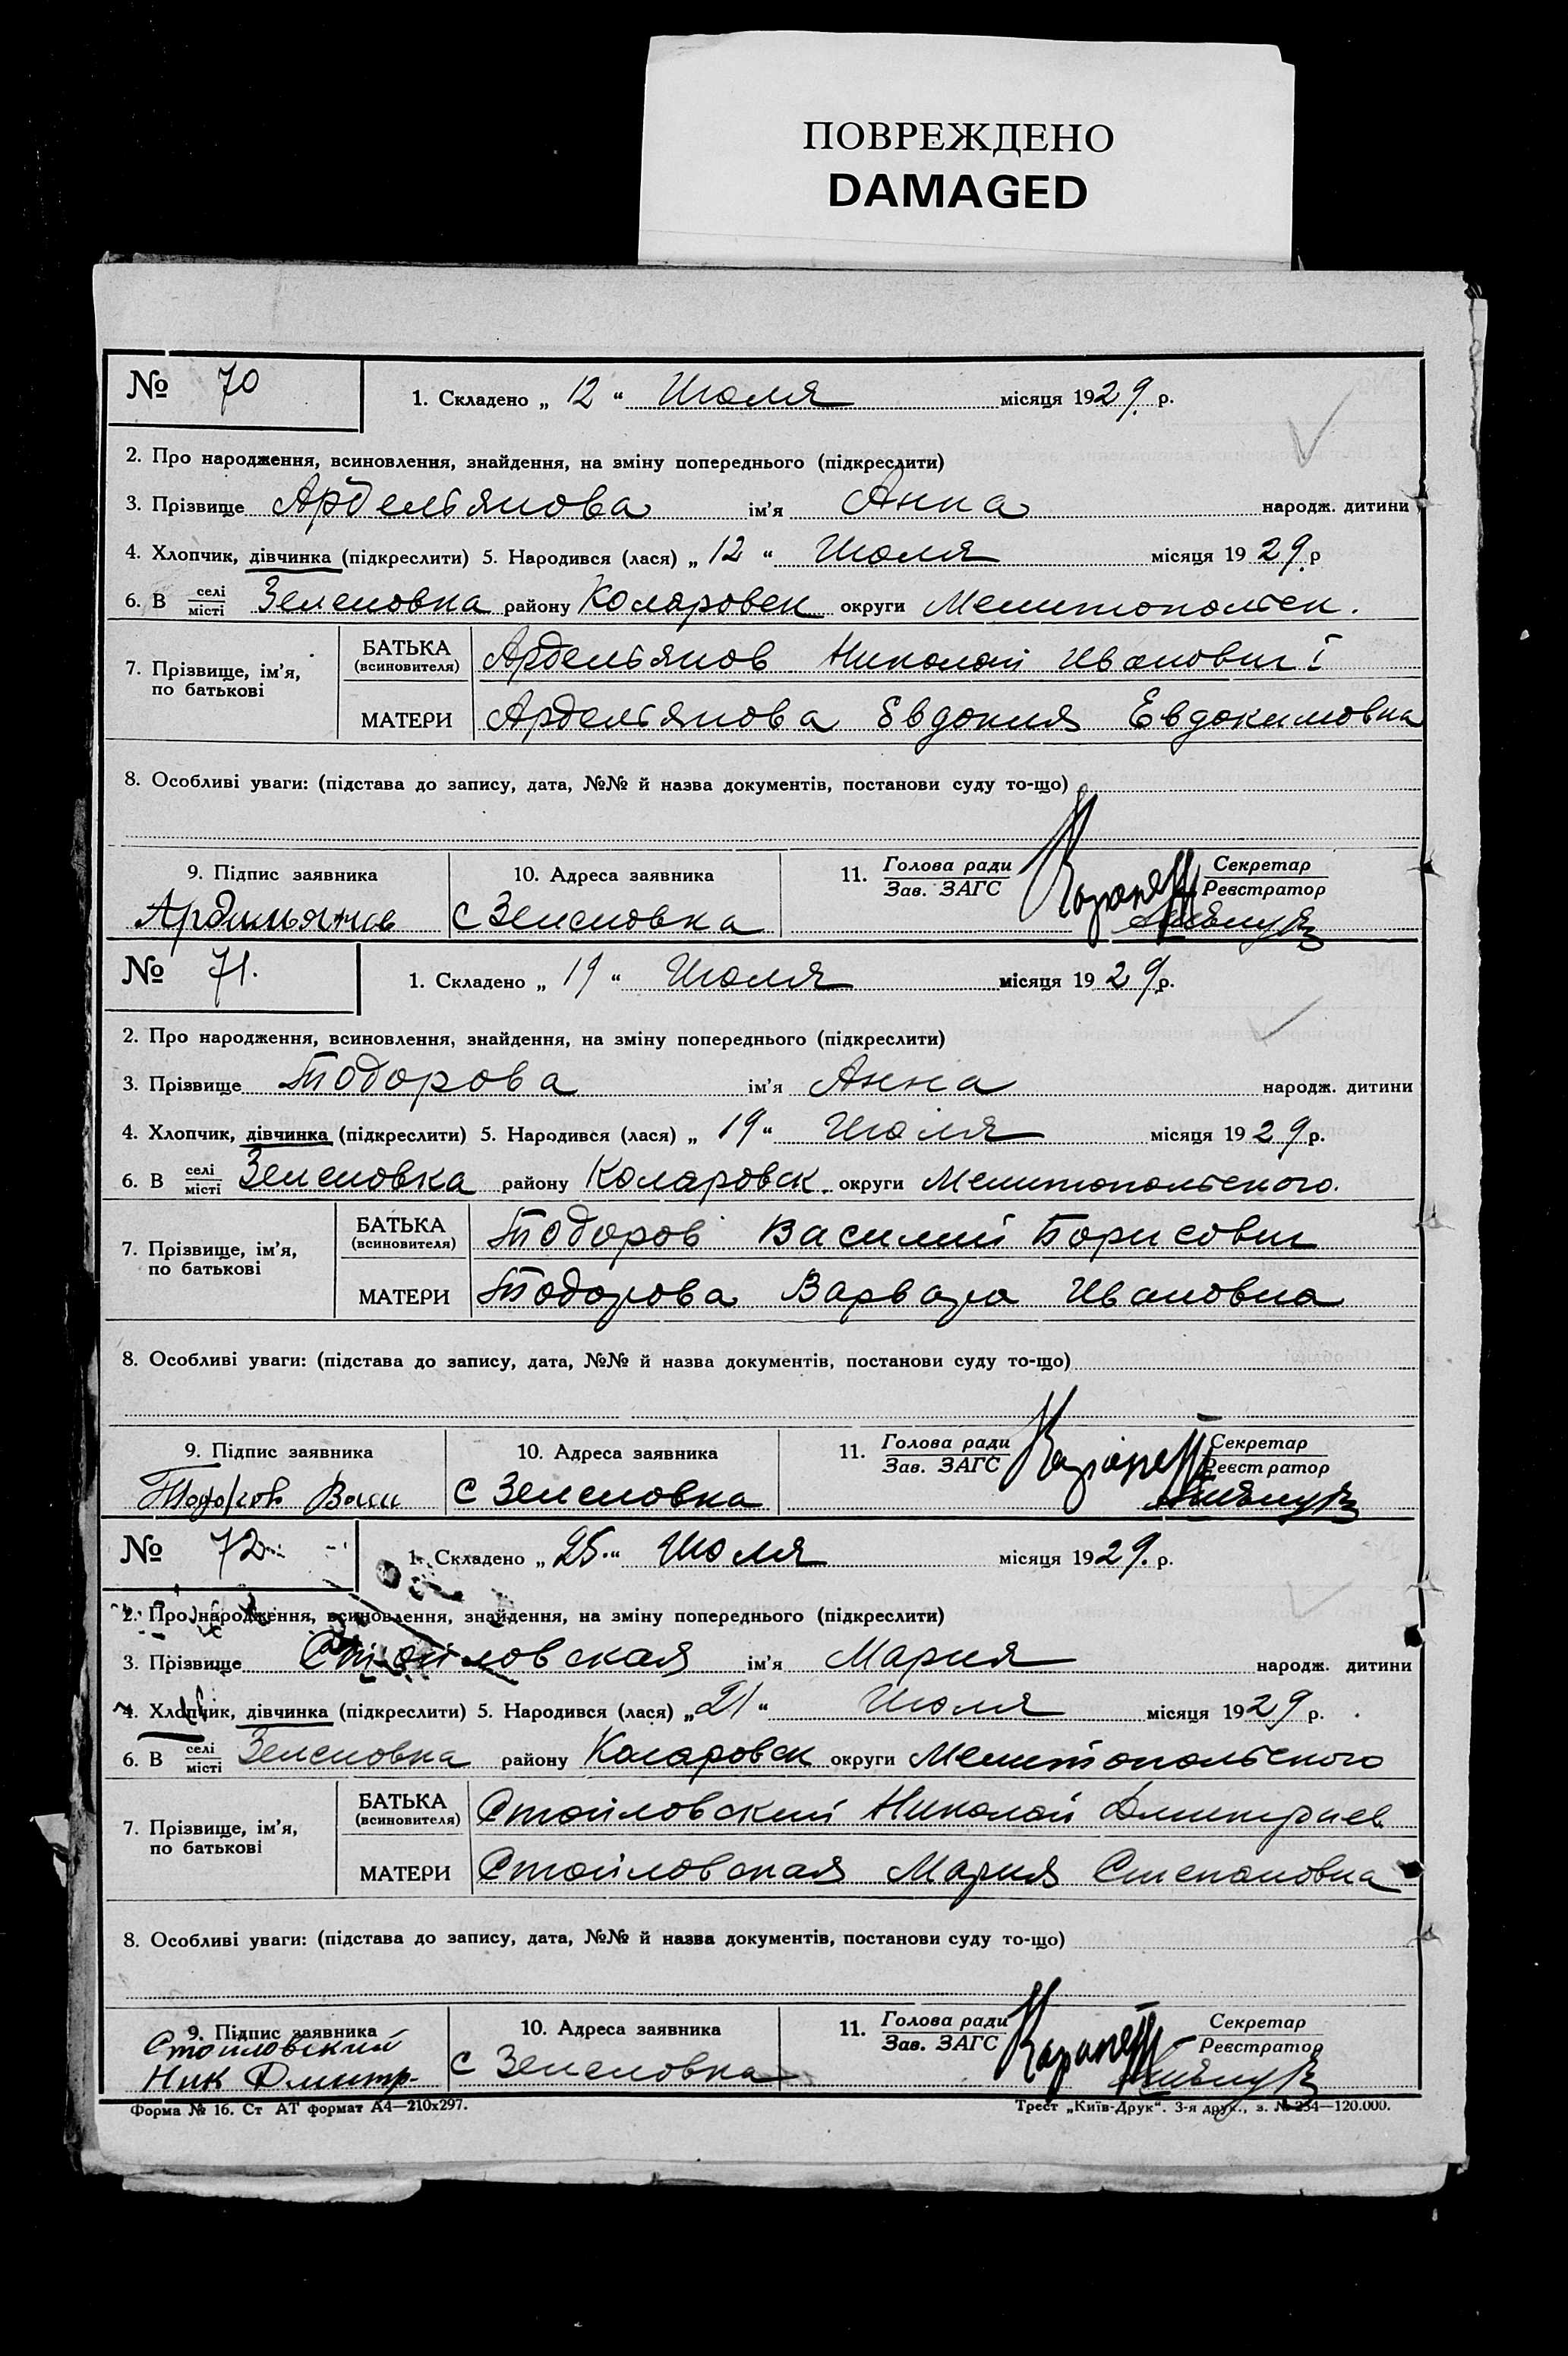 ПОВРЕЖДЕНО
DAMAGED
№ 70
1. Складено „ 12 “ Июля місяця 1929. р.
2. Про народження, всиновлення, знайдення, на зміну попереднього (підкреслити)
3. Прізвище Ардельянова ім'я Анна народж. дитини
4. Хлопчик, дівчинка (підкреслити) 5. Народився (лася) „ 12 “ Июля місяця 19 29. р
6. В селі місті Зеленовка району Коларовск округи Мелитопольск.
7. Прізвище, ім'я, по батькові
БАТЬКА (всиновителя) Ардельянов Николай Иванович I
МАТЕРИ Ардельянова Евдокия Евдокимовна
8. Особливі уваги: (підстава до запису, дата, №№ й назва документів, постанови суду то-що)
9. Підпис заявника 10. Адреса заявника 11. Голова ради Зав. ЗАГС Секретар Реєстратор
Ардельянов с Зеленовка
№ 71.
1. Складено „ 19 “ Июля місяця 19 29 р.
2. Про народження, всиновлення, знайдення, на зміну попереднього (підкреслити)
3. Прізвище Тодорова ім'я Анна народж. дитини
4. Хлопчик, дівчинка (підкреслити) 5. Народився (лася) „ 19 “ Июля місяця 19 29 р.
6. В селі місті Зеленовка району Коларовск. округи Мелитопольского.
7. Прізвище, ім'я, по батькові
БАТЬКА (всиновителя) Тодоров Василий Борисович
МАТЕРИ Тодорова Варвара Ивановна
8. Особливі уваги: (підстава до запису, дата, №№ й назва документів, постанови суду то-що)
9. Підпис заявника 10. Адреса заявника 11. Голова ради Зав. ЗАГС Секретар Реєстратор
Тодоров Васи с Зеленовка
№ 72
1. Складено „ 25. “ Июля місяця 1929. р.
2. Про народження, всиновлення, знайдення, на зміну попереднього (підкреслити)
3. Прізвище Стойловская ім'я Мария народж. дитини
4. Хлопчик, дівчинка (підкреслити) 5. Народився (лася) „ 21 “ Июля місяця 1929 р.
6. В селі місті Зеленовка району Коларовск округи Мелитопольского
7. Прізвище, ім'я, по батькові
БАТЬКА (всиновителя) Стойловский Николай Дмитриев.
МАТЕРИ Стойловская Мария Степановна
8. Особливі уваги: (підстава до запису, дата, №№ й назва документів, постанови суду то-що)
9. Підпис заявника 10. Адреса заявника 11. Голова ради Зав. ЗАГС Секретар Реєстратор
Стойловский
Ник Дмитр. с Зеленовка
Форма № 16. Ст АТ формат А4—210х297. Трест „Київ-Друк“. 3-я друк., з. № 234—120.000.